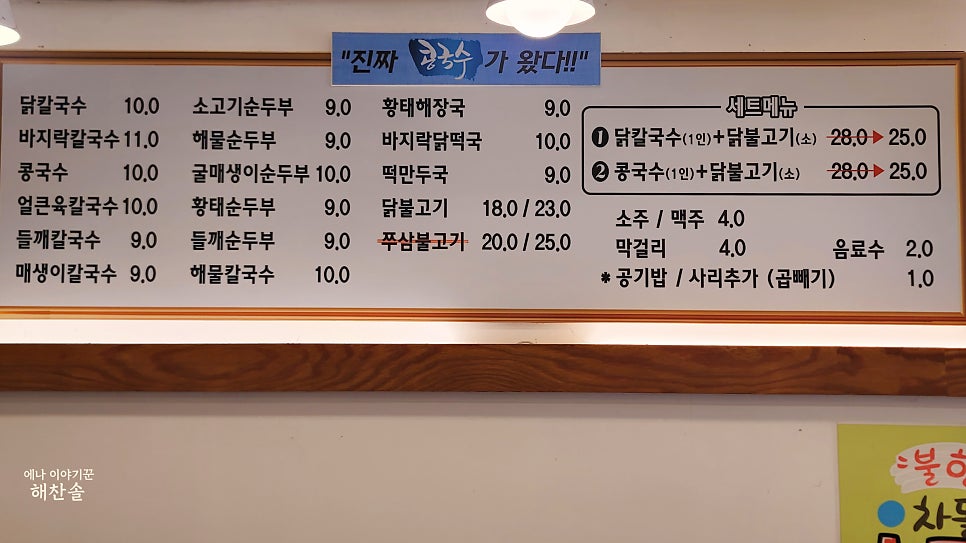 "진짜 콩국수가 왔다!!"
닭칼국수 10.0
바지락칼국수 11.0
콩국수 10.0
얼큰육칼국수 10.0
들깨칼국수 9.0
매생이칼국수 9.0
소고기순두부 9.0
해물순두부 9.0
굴매생이순두부 10.0
황태순두부 9.0
들깨순두부 9.0
해물칼국수 10.0
황태해장국 9.0
바지락닭떡국 10.0
떡만두국 9.0
닭불고기 18.0 / 23.0
쭈삼불고기 20.0 / 25.0
세트메뉴
❶ 닭칼국수(1인)+닭불고기(소) 28.0▶25.0
❷ 콩국수(1인)+닭불고기(소) 28.0▶25.0
소주 / 맥주 4.0
막걸리 4.0 음료수 2.0
* 공기밥 / 사리추가 (곱빼기) 1.0
에나 이야기꾼
해찬솔